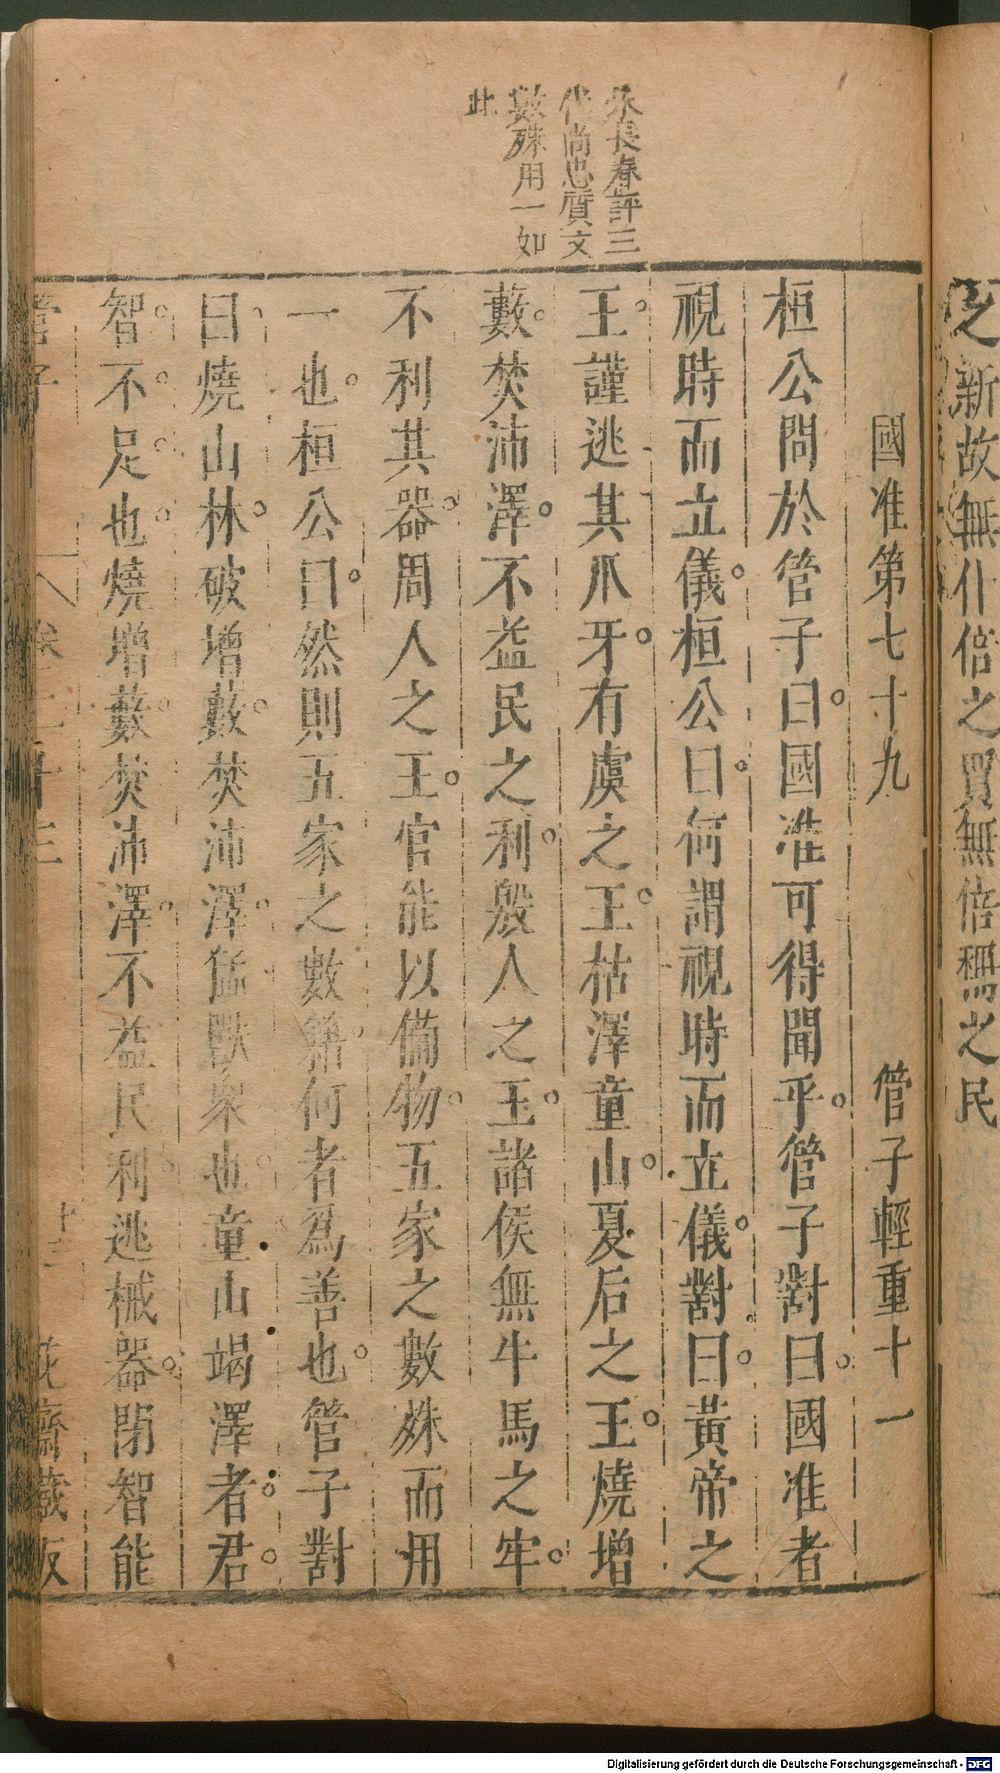 之新故無什倍之買無倍稱之民
朱長春評三
代尚忠質文
數殊用一如
此
國准第七十九 管子輕重十一
桓公問於管子曰國准可得聞乎管子對曰國准者
視時而立儀桓公曰何謂視時而立儀對曰黃帝之
王謹逃其爪牙有虞之王枯澤童山夏后之王燒增
藪焚沛澤不益民之利殷人之王諸侯無牛馬之牢
不利其器周人之王官能以備物五家之數殊而用
一也桓公曰然則五家之數籍何者為善也管子對
曰燒山林破增藪焚沛澤猛獸衆也童山竭澤者君
智不足也燒增藪焚沛澤不益民利逃械器閉智能
管子 卷二十三 十三 花齋藏板
Digitalisierung gefördert durch die Deutsche Forschungsgemeinschaft - DFG